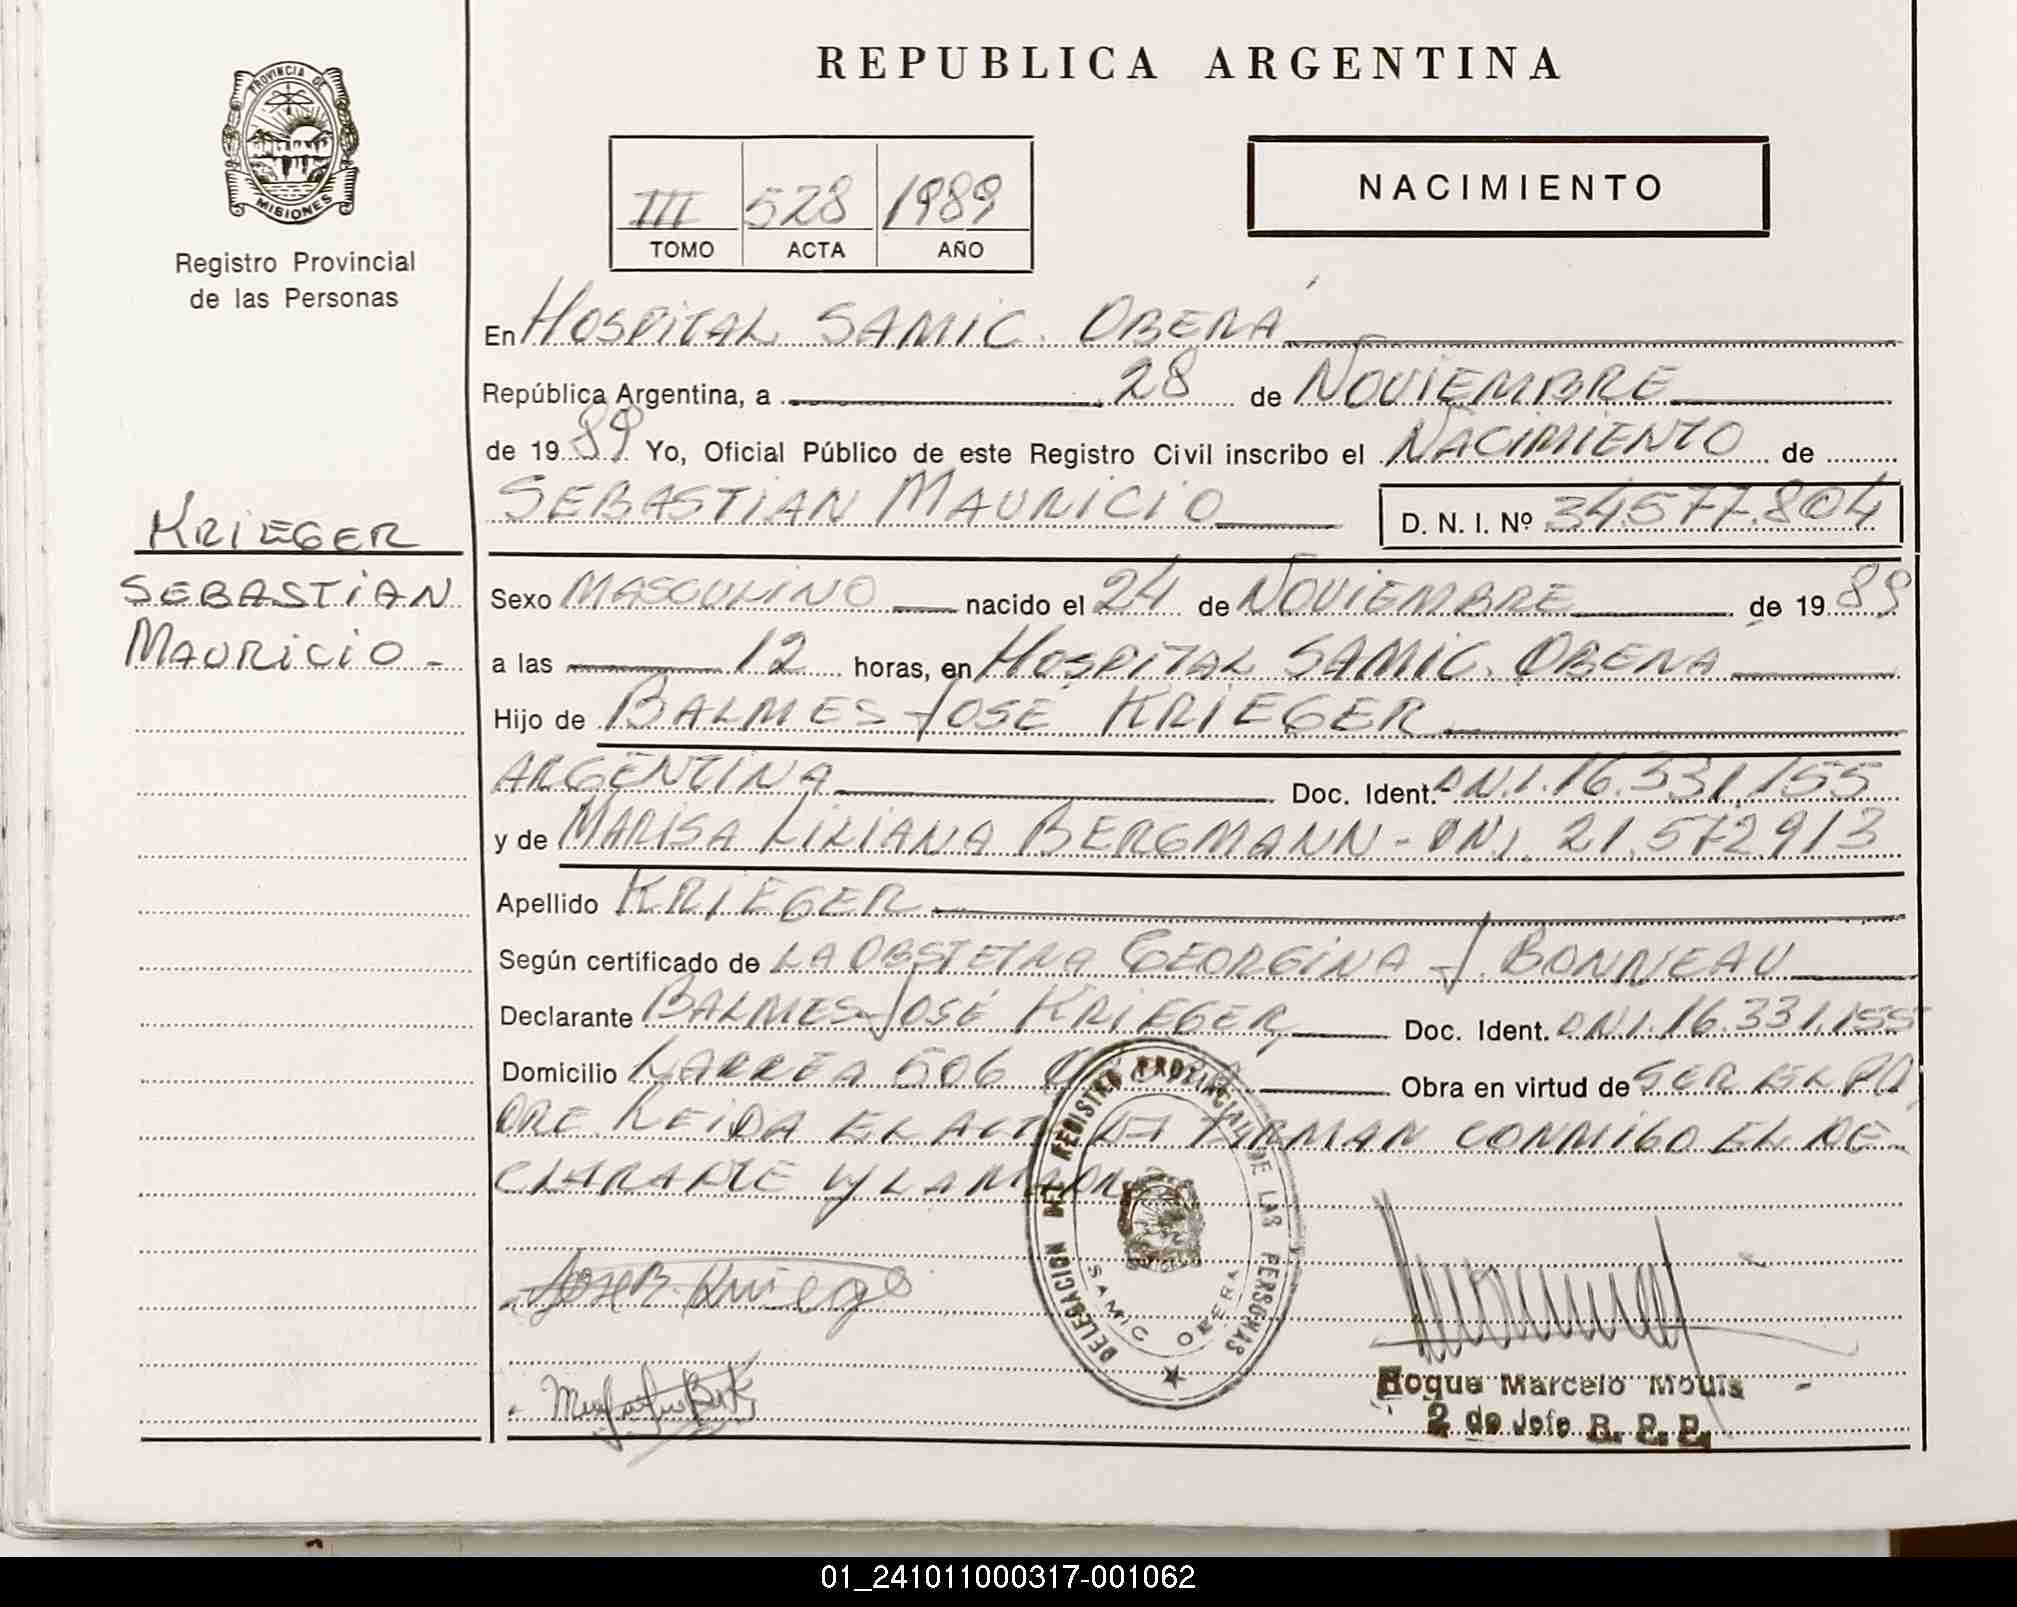 REPUBLICA ARGENTINA
PROVINCIA DE
MISIONES
Registro Provincial
de las Personas
III 528 1989
TOMO ACTA AÑO
NACIMIENTO
En HOSPITAL SAMIC. OBERÁ
República Argentina, a 28 de NOVIEMBRE
de 1989 Yo, Oficial Público de este Registro Civil inscribo el NACIMIENTO de
SEBASTIAN MAURICIO D. N. I. Nº 34.577.804
KRIEGER
SEBASTIAN
MAURICIO -
Sexo MASCULINO nacido el 24 de NOVIEMBRE de 1989
a las 12 horas, en HOSPITAL SAMIC. OBERA
Hijo de BALMES JOSÉ KRIEGER
ARGENTINA Doc. Ident. DNI. 16.331.155
y de MARISA LILIANA BERGMANN - DNI. 21.572.913
Apellido KRIEGER
Según certificado de LA OBSTETRA GEORGINA J. BONNEAU
Declarante BALMES JOSÉ KRIEGER Doc. Ident. DNI. 16.331.155
Domicilio LARREA 506 Obra en virtud de SER EL PA
DRE. LEIDA EL ACTA LA FIRMAN CONMIGO EL DE
CLARANTE Y LA MADRE
DELEGACION DEL REGISTRO PROVINCIAL DE LAS PERSONAS
SAMIC OBERA
Jose B. Krieger
Roque Marcelo Mouis
2 do Jefe R. P. P.
01_241011000317-001062